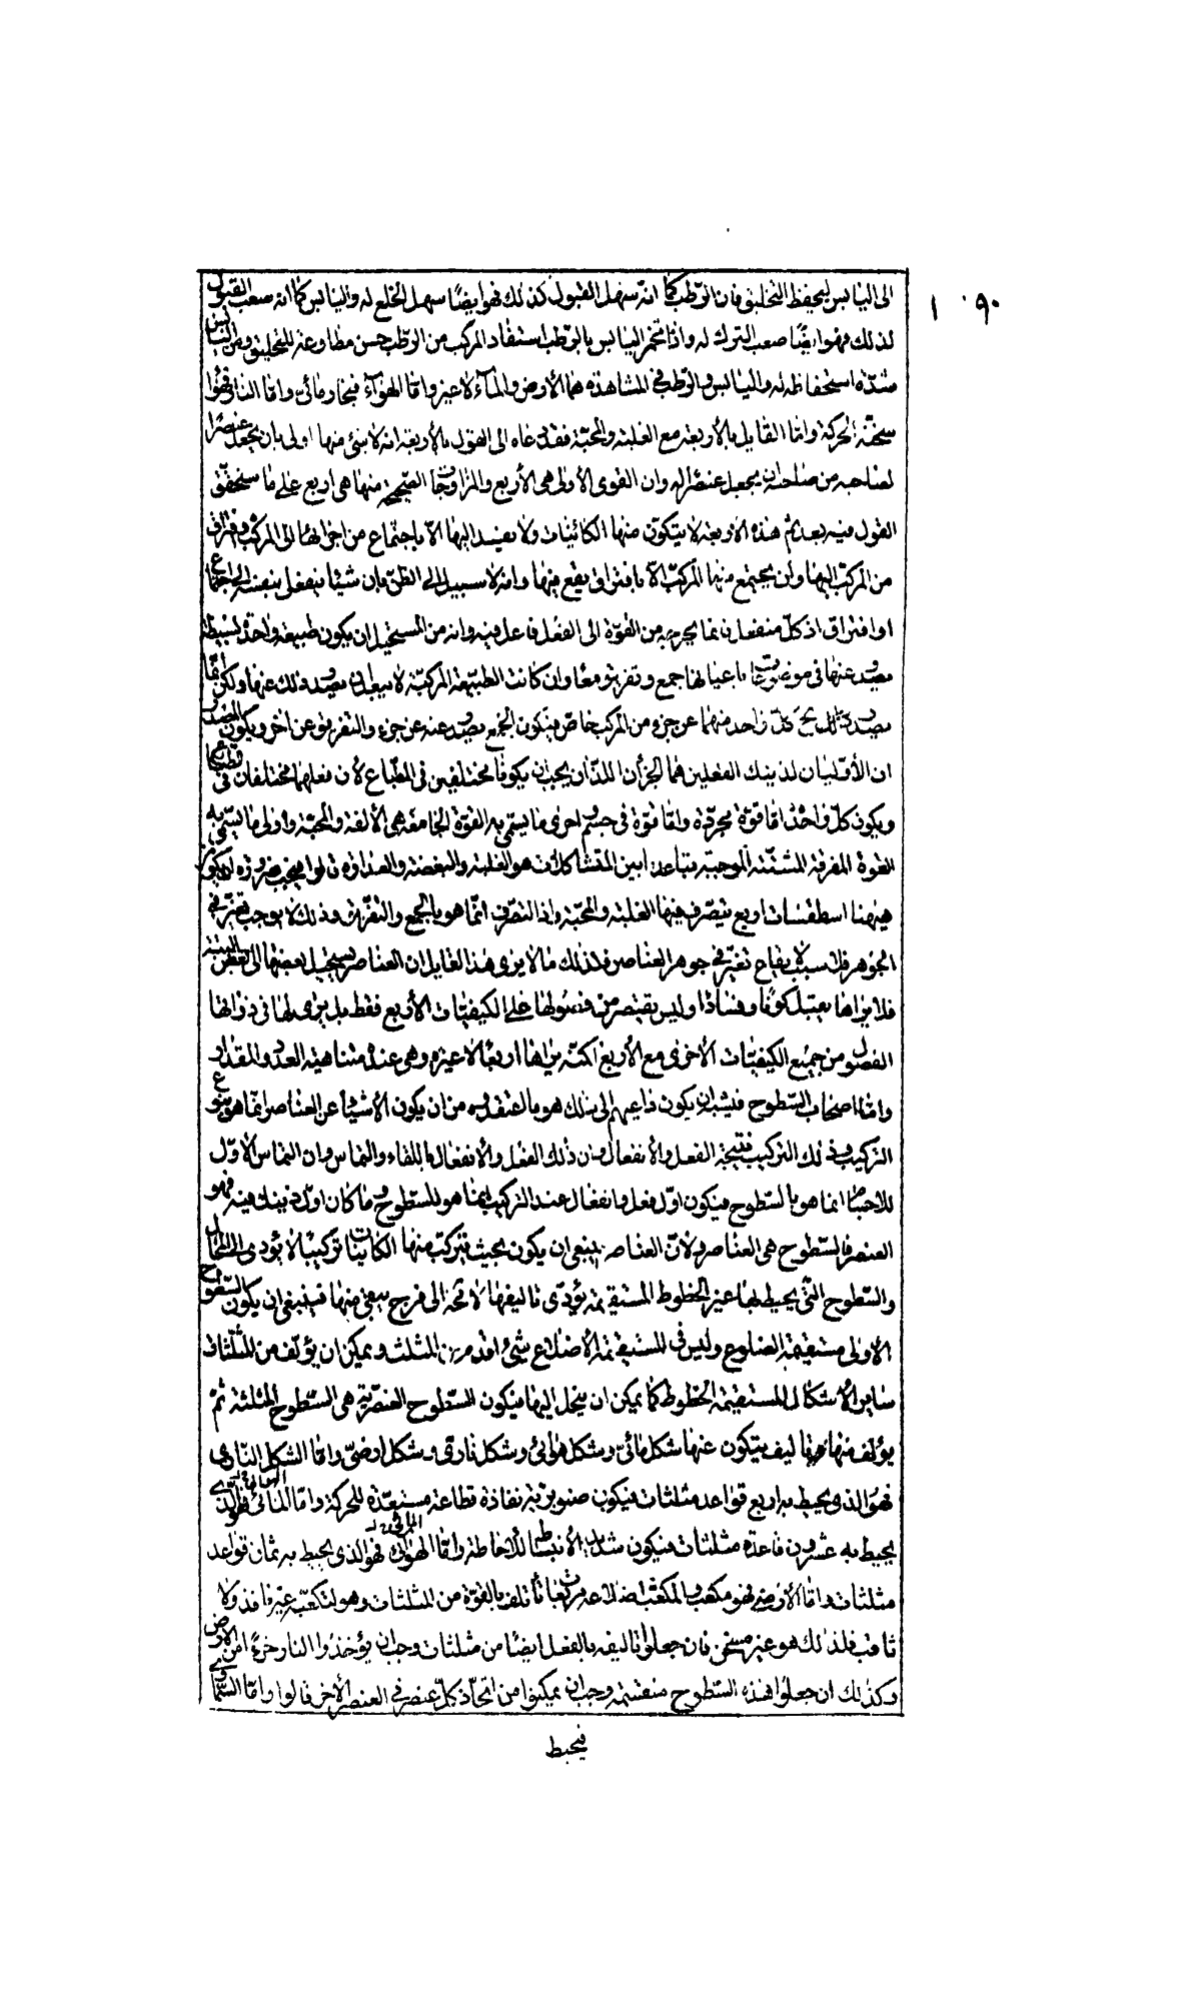 ١٠٩٠
الى اليابس ليحفظ التخليق فان الرّطب كما انّه سهل القبول كذلك فهو ايضًا سهل الخلع له واليابس كما انه صعب القبول
لذلك فهو ايضًا صعب الترك له واذا تخمر اليابس بالرّطب استفاد المركب من الرّطب حسن مطاوعته للتخليق ومن اليابس
شدّة استحفاظه له واليابس والرّطب فى المشاهدة هما الأرض والمآء لا غير وامّا الهوآء فبخار مائى وامّا النار فهوآء
سخنته الحركة وامّا القايل بالأربعة مع الغلبة والمحبّة فقد دعاه الى القول بالأربعة انه لا شئ منها اولى بان يجعل عنصرًا
لصاحبه من صاحبه ان يجعل عنصرًا له وان القوى الأولى هى الأربع والمزاوجات الصّحيحة منها هى اربع على ما سنحقّق
القول فيه بعد ثم هذه الأربعة لا يتكوّن منها الكائنات ولا تفسد اليها الّا باجتماع من اجزائها الى المركّب وافتراق
من المركّب اليها ولن يجتمع منها المركّب الّا بافتراق يقع فيها وانه لا سبيل الى الظنّ بان شيئا ينفعل بنفسه الى اجتماع
او افتراق اذ كلّ منفعل فانما يخرجه من القوّة الى الفعل فاعل فيه وانه من المستحيل ان يكون طبيعة واحدة بسيطة
يصدر عنها فى موضوعات باعيانها جمع وتفريق معًا وان كانت الطبيعة المركبة لا يبعد ان يصدر ذلك عنها ولكن انّما
يصدر كلّ واحد منهما عن جزو من المركب خاصّ فيكون الجمع يصدر عنه عن جزء والتفريق عن اخر ويكون المصدر
ان الأوّليان لذينك الفعلين هما الجزأن اللذان يجب ان يكونا مختلفين فى الطّباع لأن فعلهما مختلفان فى طباعهما
ويكون كلّ واحد امّا قوّة مجرّدة وامّا قوّة فى جسم اخرى ما يسمّى به القوّة الجامعة هى الألفة والمحبّة واولى ما يسمّى به
القوة المفرقة المشتّتة الموجبة تباعد ابين المتشاكلات هو الغلبة والبغضة والعداوة قالوا فيجب ضرورة ان يكون
هيهنا اسطقسات اربع يتصرّف فيها الغلبة والمحبّة واذ التصرّف انّما هو بالجمع والتفريق وذلك لا يوجب تغيّرا فى
الجوهر فلا سبب لايقاع تغيّر فى جوهر العناصر فلذلك ما لا يرى هذا القايل ان العناصر يستحيل بعضها الى بعض البتة
فلا يراها يقبل كونًا وفسادًا وليس يقتصر من فصولها على الكيفيّات الأربع فقط بل يرى لها فى ذواتها
الفصول من جميع الكيفيّات الأخرى مع الأربع لكنّه يراها اربعًا لا غير وهى عنده متناهية العدد والمقدار
وامّا اصحاب السّطوح فيشبه ان يكون داعيهم الى ذلك هو ما اعتقدوه من ان يكون الأشياء عن العناصر انّما هو بنوع
التركيب وذلك التركيب نتيجة الفعل والانفعال وان ذلك الفعل والأنفعال باللقاء والتماس وان التماس الأوّل
للاجسام انما هو بالسّطوح فيكون اوّل فعل وانفعال عند التركيب انما هو للسّطوح وما كان اوّل ذينك فيه فهو
العنصر فالسّطوح هى العناصر ولأنّ العناصر ينبغى ان يكون بحيث يتركّب منها الكاينات تركيبًا لا يؤدى الى المحال
والسّطوح الّتى يحيط بها غير الخطوط المستقيمة يؤدّى تاليفها لا محة الى فرج يبقى منها فينبغى ان يكون السّطوح
الأولى مستقيمة الضلوع وليس فى المستقيمة الأضلاع شئ اقدم من المثلث ويمكن ان يؤلّف من المثلّثات
ساير الأشكال المستقيمة الخطوط كما يمكن ان ينحل اليها فيكون السّطوح العنصريّة هى السّطوح المثلثة ثمّ
يؤلّف منها تاليف يتكون عنها شكل مائىّ وشكل هوائىّ وشكل نارىّ وشكل ارضىّ وامّا الشكل النّارى
فهو الذى يحيط به اربع قواعد مثلثات فيكون صنوبريّة نفاذة قطاعة مستعدّة للحركة وامّا المائى فهو الّذى
يحيط به عشرون قاعدة مثلثات فيكون شديد الأنبساط للأحاطة وامّا الهوائى فهو الذى يحيط به ثمان قواعد
مثلثات وامّا الأرضى فهو مكعب والمكعّب اضلاعه مربّعات تأتلف بالقوّة من المثلثات وهو لتكعّبه غير نافذ ولا
ثاقب فلذلك هو غير مسخن فان جعلوا تاليفه بالفعل ايضًا من مثلثات وجب ان يؤخذوا النار جزءًا من الأرض
وكذلك ان جعلوا هذه السّطوح منقسمة وجب ان يمكنوا من اتّحاذ كلّ عنصر فى العنصر الأخر قالوا وامّا السّماوى
فيحيط